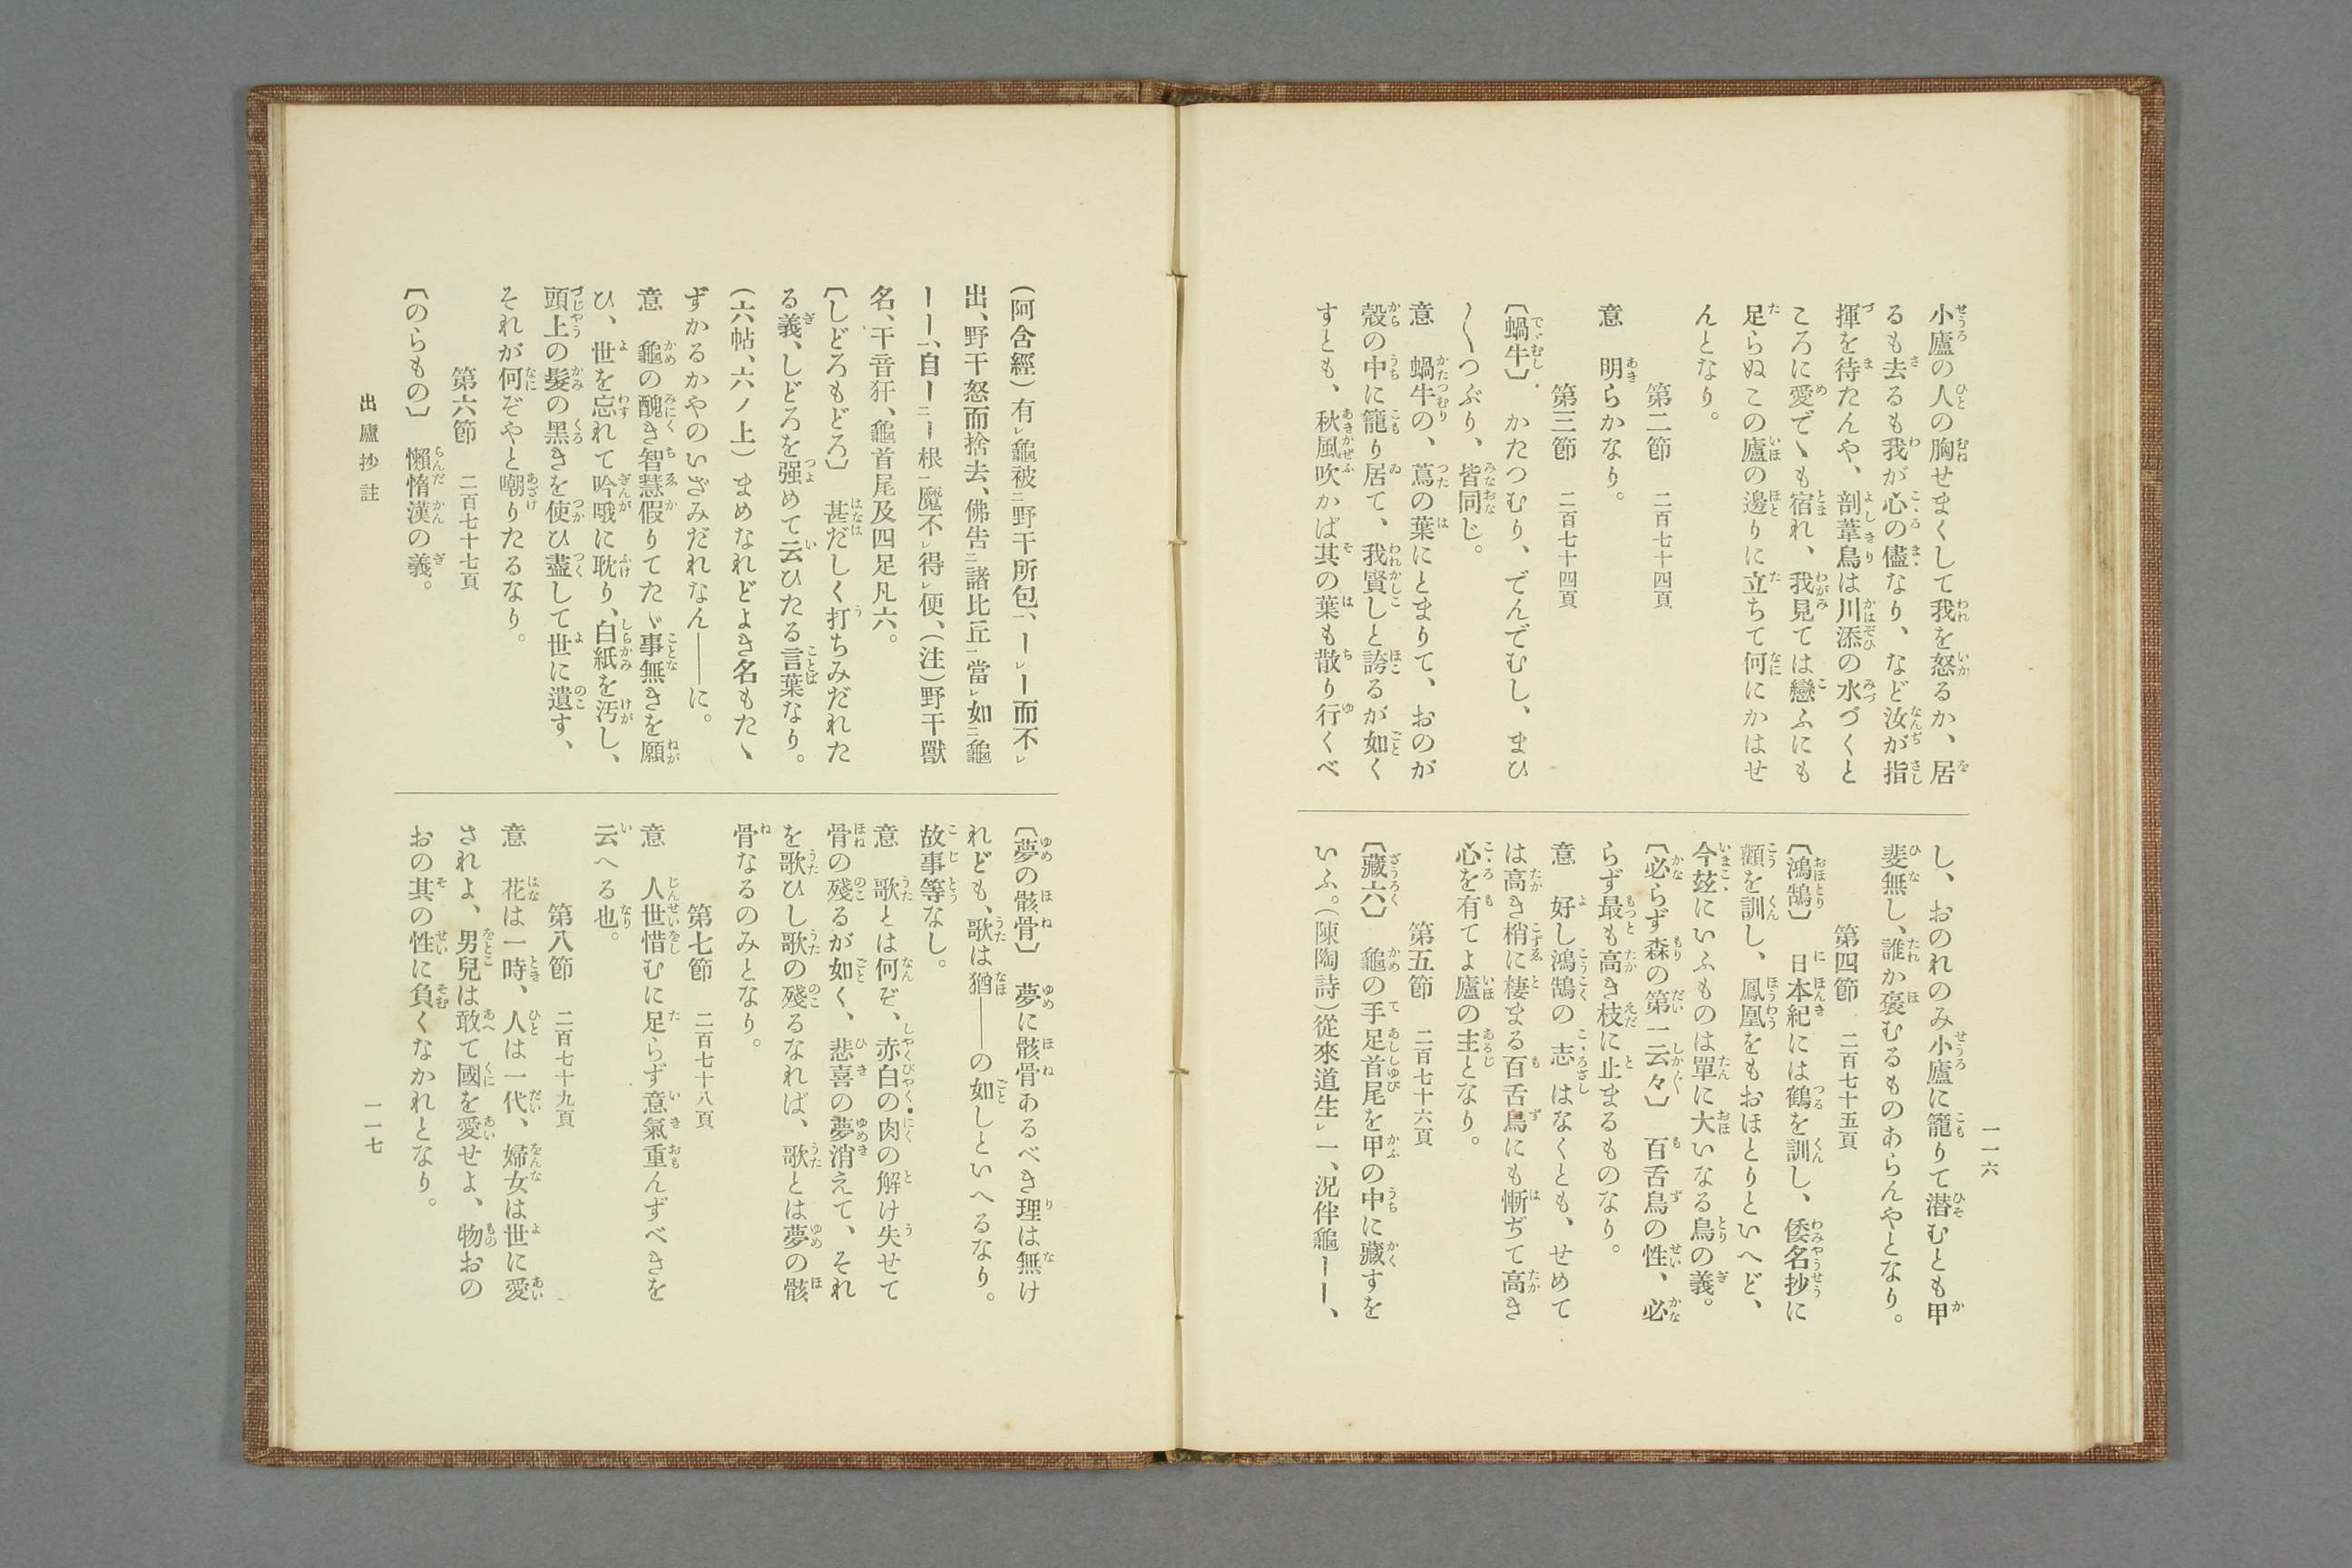 一一六
小廬の人の胸せまくして我を怒るか、居
るも去るも我が心の儘なり、など汝が指
揮を待たんや、剖葦鳥は川添の水づくと
ころに愛でゝも宿れ、我見ては戀ふにも
足らぬこの廬の邊りに立ちて何にかはせ
んとなり。
第二節　二百七十四頁
意　明らかなり。
第三節　二百七十四頁
〔蝸牛〕　かたつむり、でんでむし、まひ
〳〵つぶり、皆同じ。
意　蝸牛の、蔦の葉にとまりて、おのが
殼の中に籠り居て、我賢しと誇るが如く
すとも、秋風吹かば其の葉も散り行くべ
し、おのれのみ小廬に籠りて潛むとも甲
斐無し、誰か褒むるものあらんやとなり。
第四節　二百七十五頁
〔鴻鵠〕　日本紀には鶴を訓し、倭名抄に
顴を訓し、鳳凰をもおほとりといへど、
今玆にいふものは單に大いなる鳥の義。
〔必らず森の第一云々〕　百舌鳥の性、必
らず最も高き枝に止まるものなり。
意　好し鴻鵠の志はなくとも、せめて
は高き梢に棲まる百舌鳥にも慚ぢて高き
心を有てよ廬の主となり。
第五節　二百七十六頁
〔藏六〕　龜の手足首尾を甲の中に藏すを
いふ。（陳陶詩）從來道生レ一、況伴龜ーー、
（阿含經）有レ龜被二野干所包一、ーレー而不レ
出、野干怒而捨去、佛告二諸比丘一當レ如二龜
ーー一、自ー二ー根一魔不レ得レ便、（注）野干獸
名、干音犴、龜首尾及四足凡六。
〔しどろもどろ〕　甚だしく打ちみだれた
る義、しどろを强めて云ひたる言葉なり。
（六帖、六ノ上）まめなれどよき名もたゝ
ずかるかやのいざみだれなん――に。
意　龜の醜き智慧假りてたゞ事無きを願
ひ、世を忘れて吟哦に耽り、白紙を汚し、
頭上の髮の黑きを使ひ盡して世に遺す、
それが何ぞやと嘲りたるなり。
第六節　二百七十七頁
〔のらもの〕　懶惰漢の義。
〔夢の骸骨〕　夢に骸骨あるべき理は無け
れども、歌は猶――の如しといへるなり。
故事等なし。
意　歌とは何ぞ、赤白の肉の解け失せて
骨の殘るが如く、悲喜の夢消えて、それ
を歌ひし歌の殘るなれば、歌とは夢の骸
骨なるのみとなり。
第七節　二百七十八頁
意　人世惜むに足らず意氣重んずべきを
云へる也。
第八節　二百七十九頁
意　花は一時、人は一代、婦女は世に愛
されよ、男兒は敢て國を愛せよ、物おの
おの其の性に負くなかれとなり。
出廬抄註
一一七